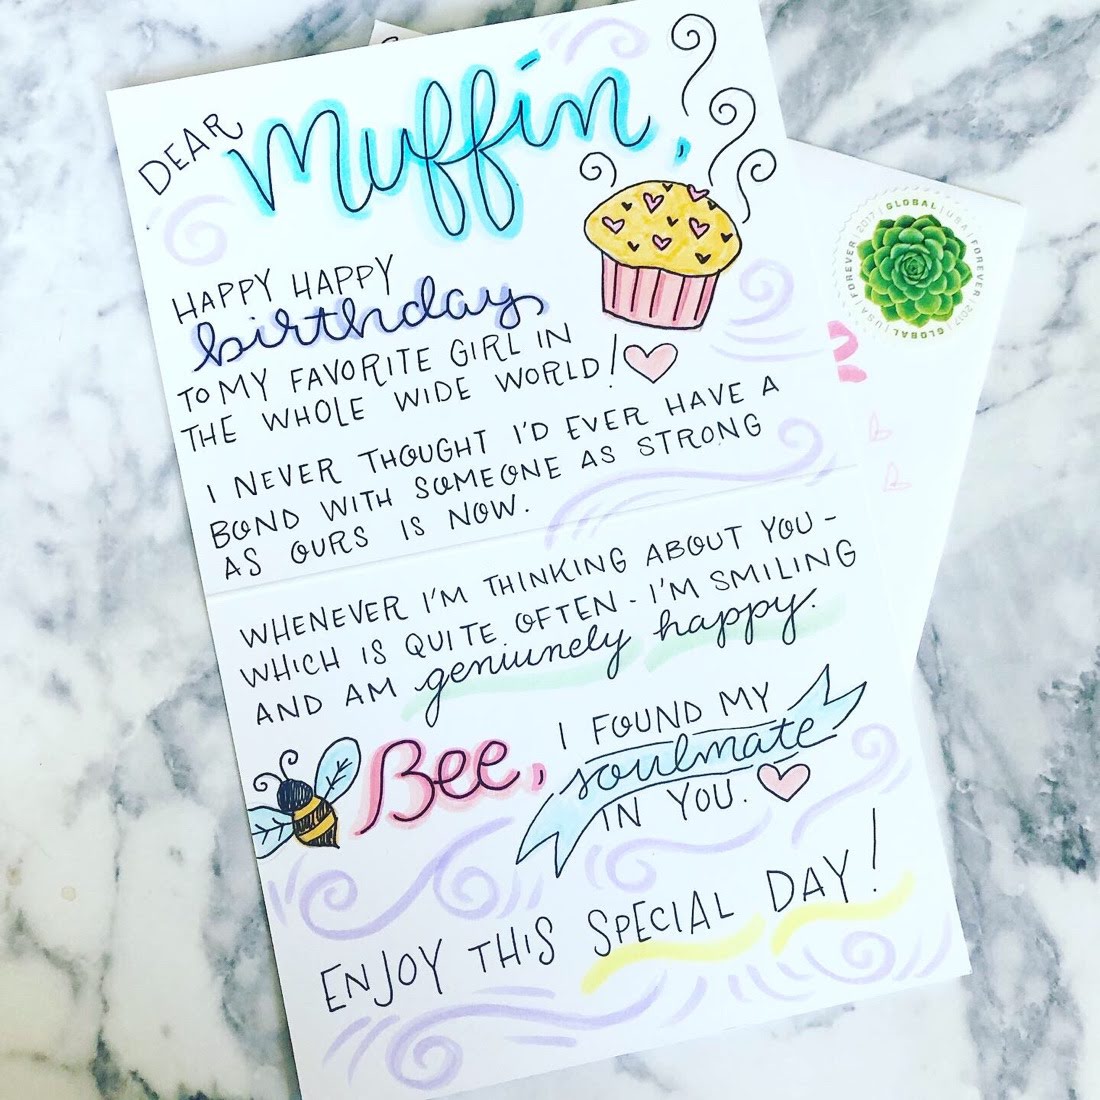 DEAR Muffin,
HAPPY HAPPY
birthday
TO MY FAVORITE GIRL IN
THE WHOLE WIDE WORLD!
I NEVER THOUGHT I'D EVER HAVE A
BOND WITH SOMEONE AS STRONG
AS OURS IS NOW.
WHENEVER I'M THINKING ABOUT YOU -
WHICH IS QUITE OFTEN - I'M SMILING
AND AM geniunely happy.
Bee, I FOUND MY
soulmate
IN YOU.
ENJOY THIS SPECIAL DAY!
FOREVER | 2017 | GLOBAL | USA | FOREVER | 2017 | GLOBAL | USA